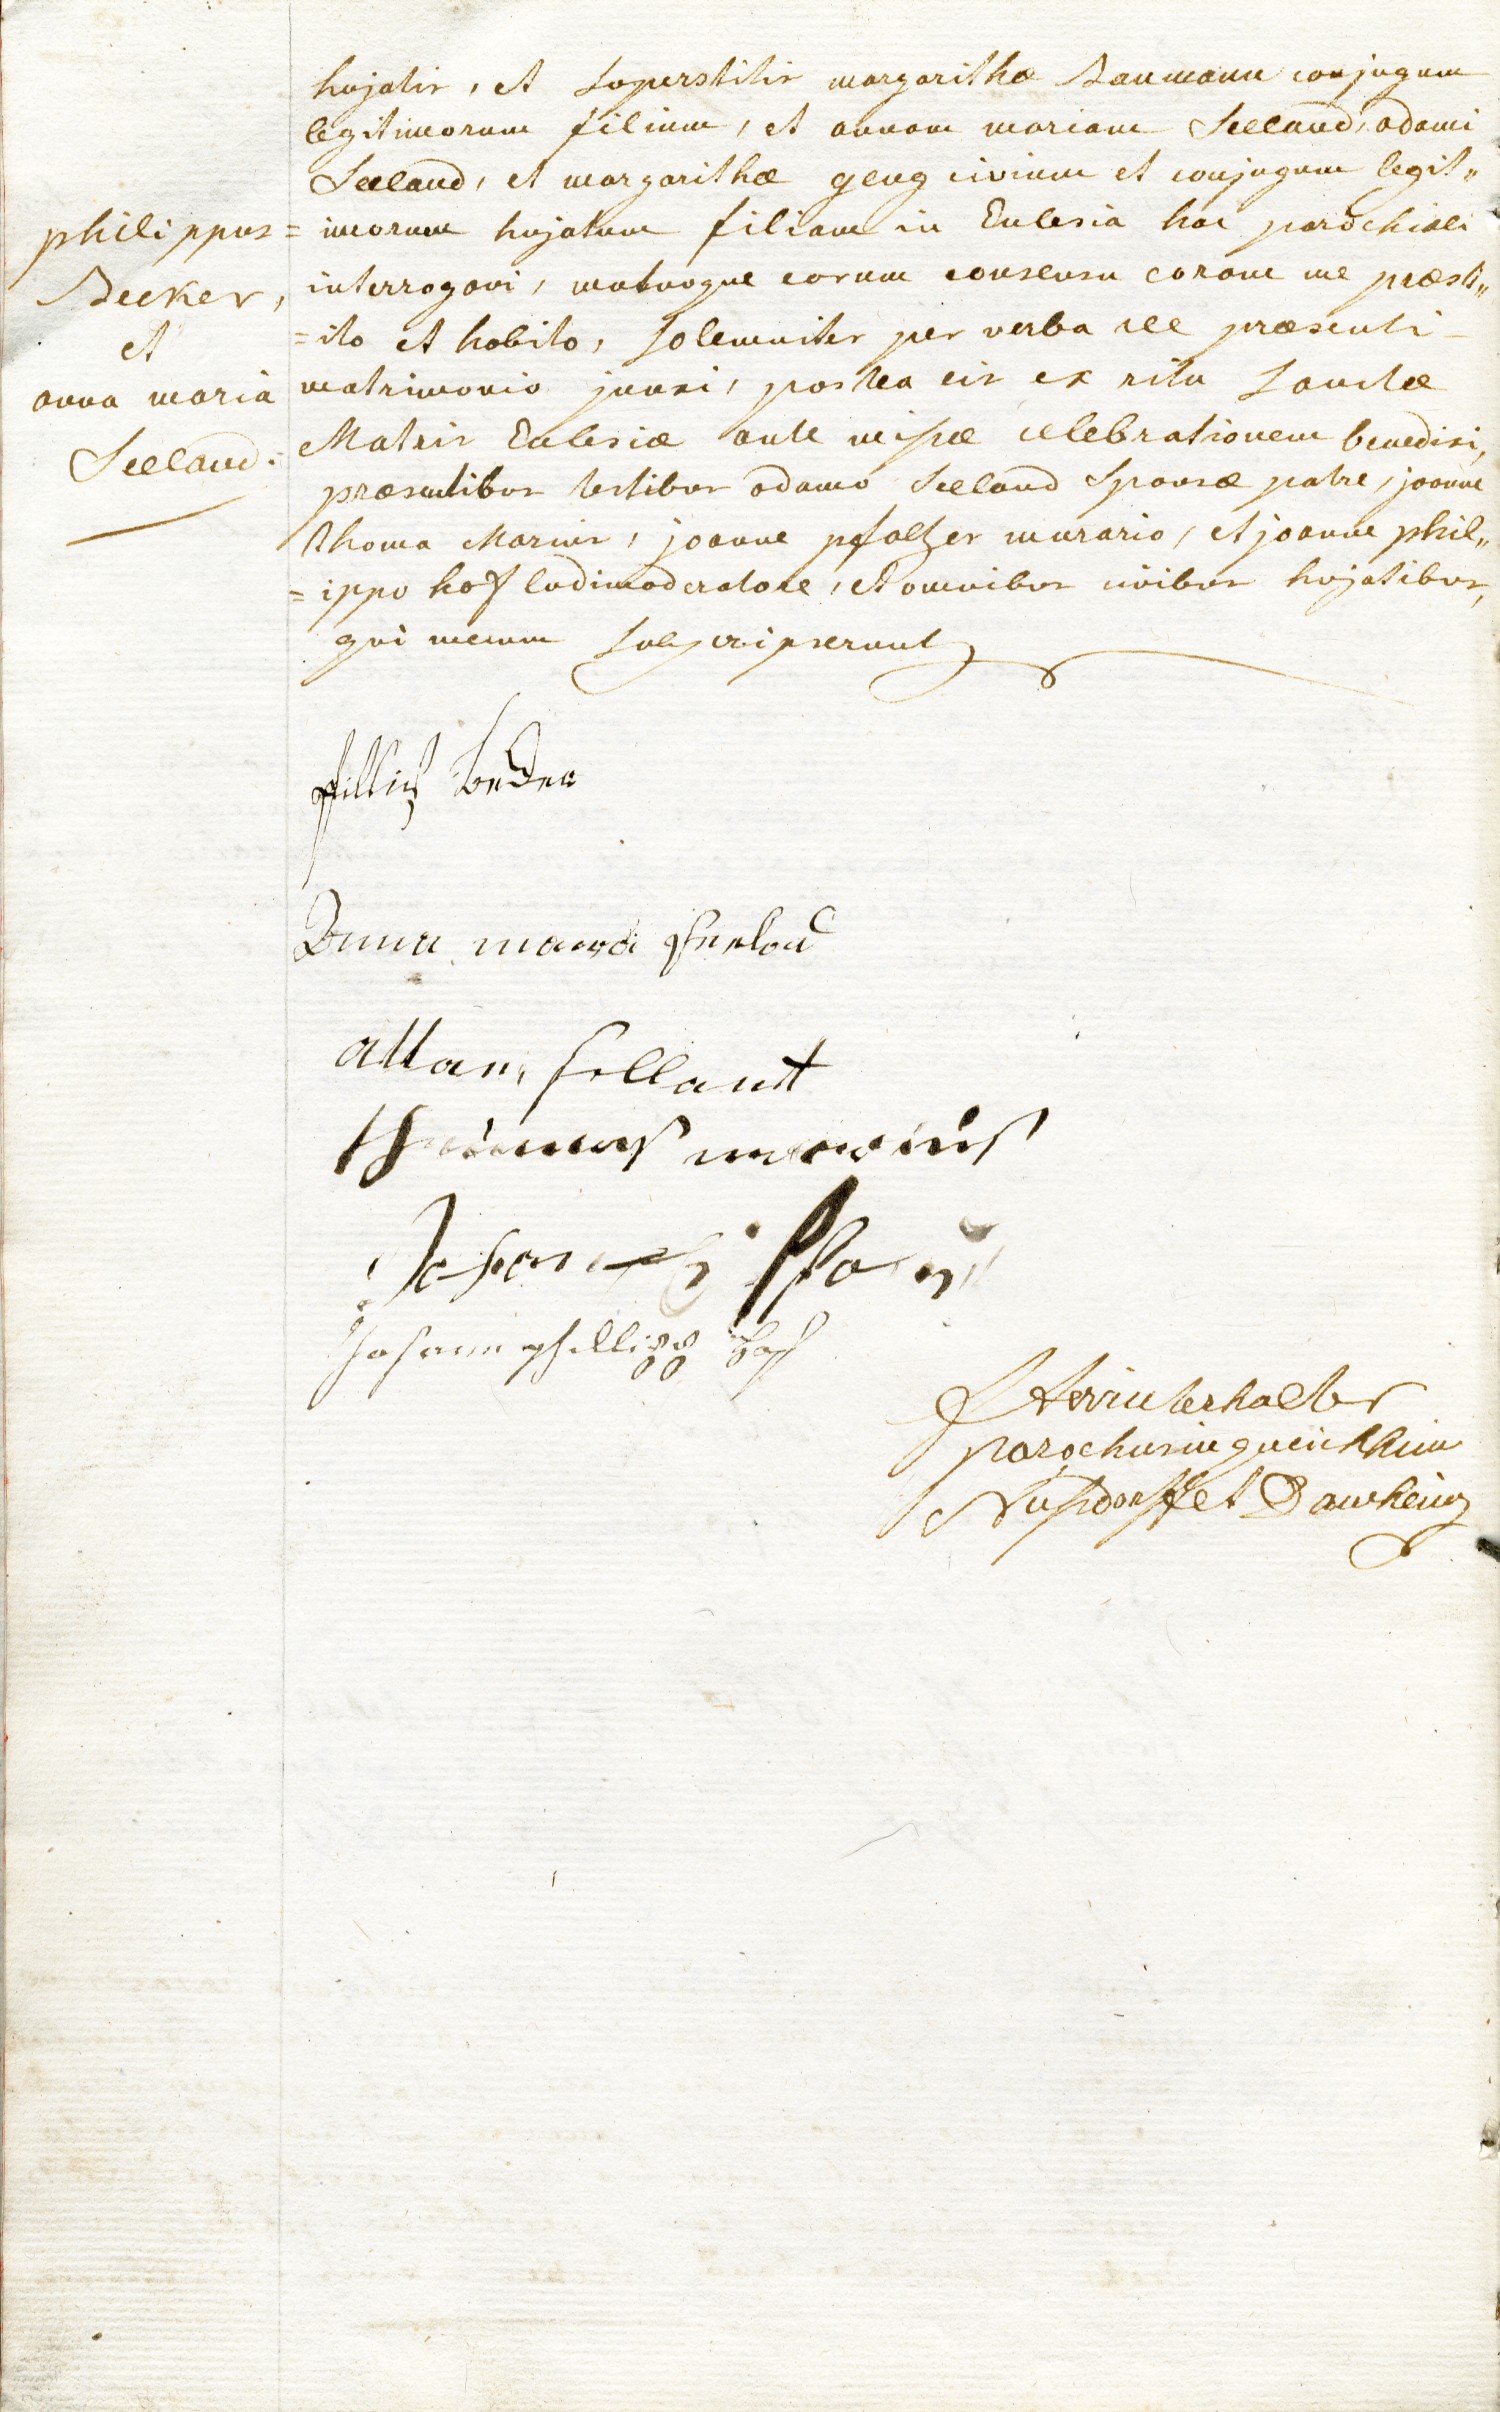 philippus
Becker,
et
anna maria
Seeland.
hujatis, et superstitis margarithæ Baumann conjugum
legitimorum filium, et annam mariam Seeland, adami
Seeland, et margarithæ geng civium et conjugum legit„
= imorum hujatum filiam in Eclesia hac parochiali
interrogavi, mutuoque eorum consensu coram me præst„
= ito et habito, solemniter per verba de præsenti
matrimonio junxi, postea eis ex ritu Sanctæ
Matris Eclesiæ ante missæ celebrationem benedixi,
præsentibus testibus adamo Seeland Sponsæ patre, joanne
thoma Marius, joanne pfaltzer murario, et joanne phil„
= ippo hof ludimoderatore, et omnibus civibus hujatibus,
qui mecum subscripserunt
fillich becker
Anna maria
attam sellantt
thomas marius
Johannes
Johann phillipp hoff
winterhalter
parochus in queichheim
Nusdorff et Damheim